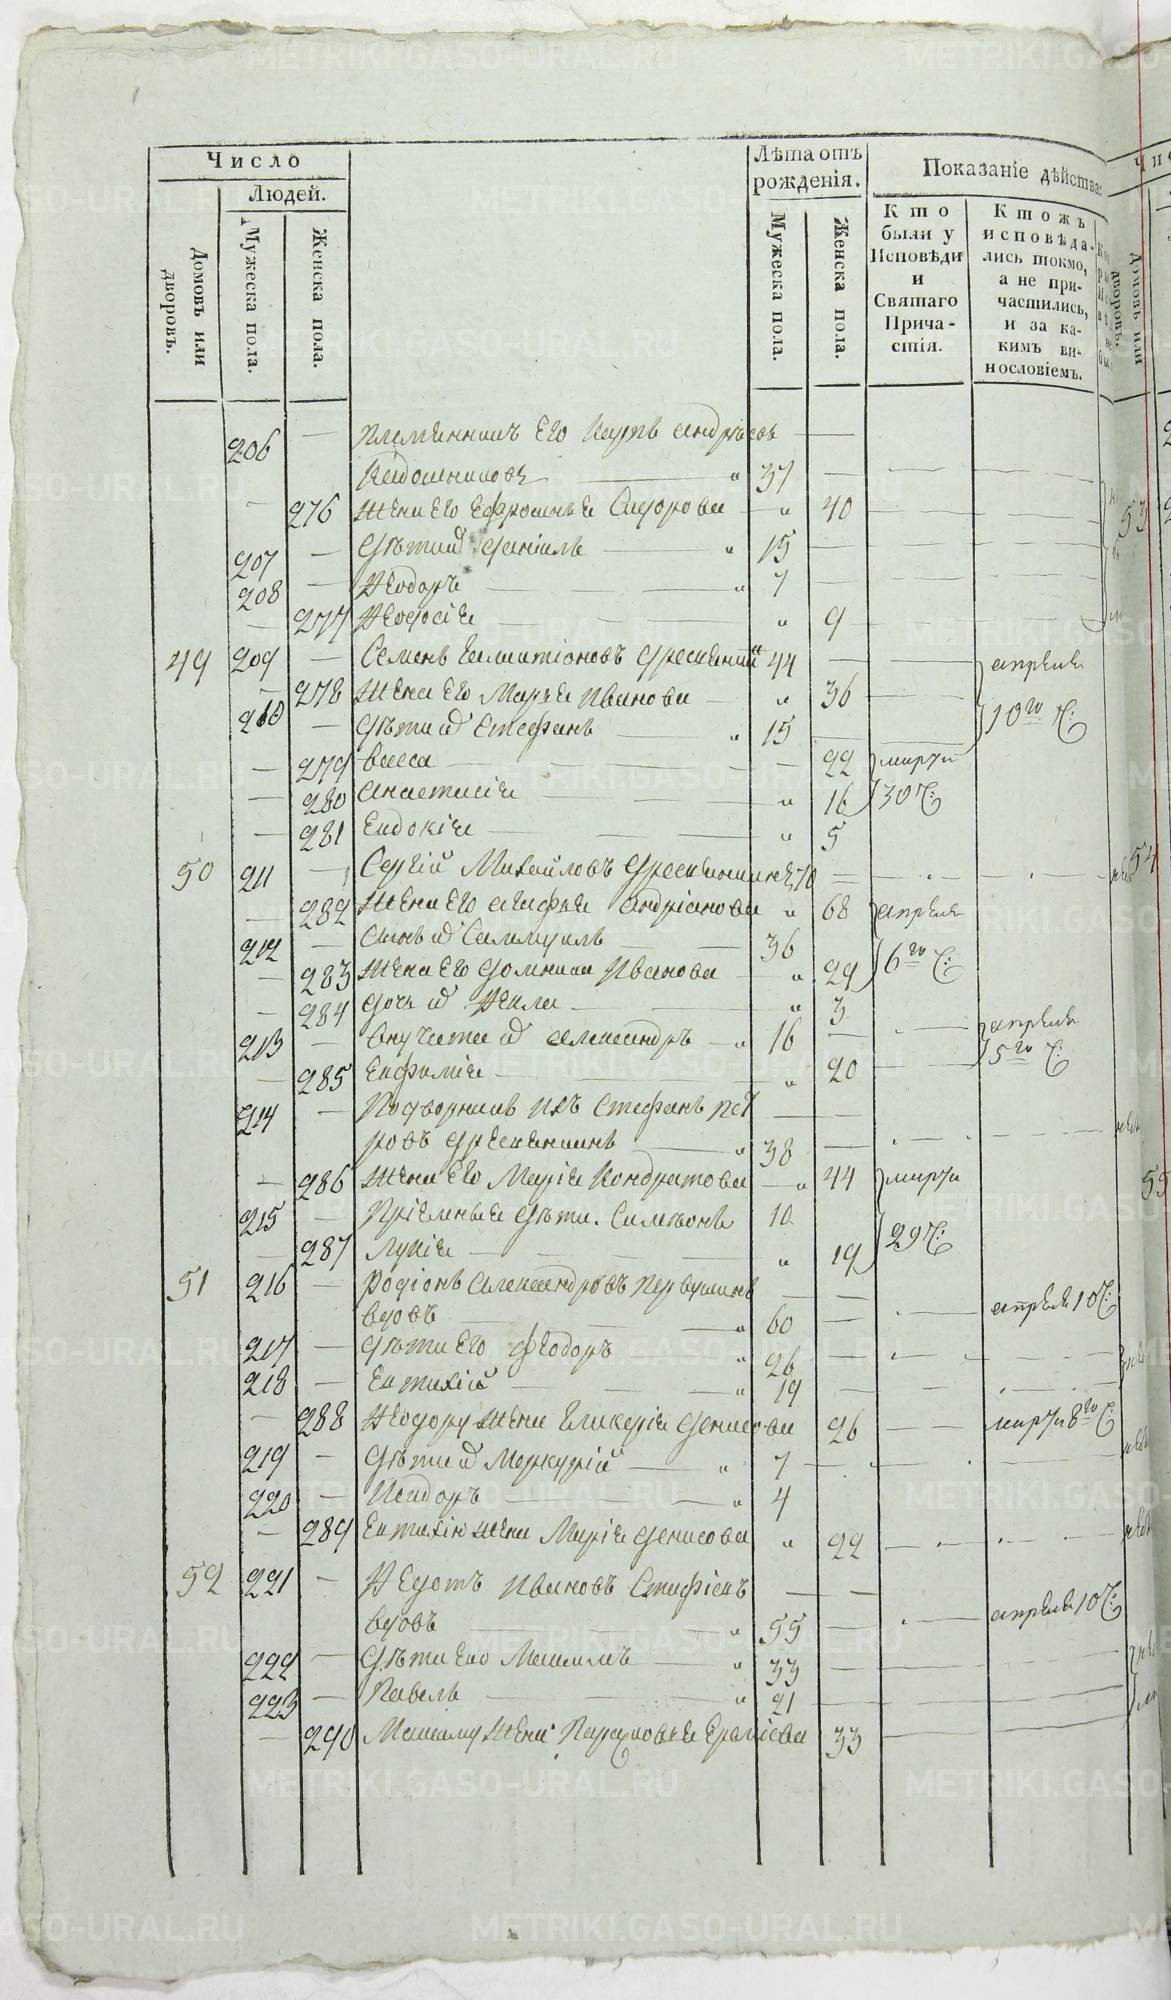 Число
Людей.
Домовъ или дворовъ.
Мужеска пола.
Женска пола.
Лѣта отъ рожденія.
Мужеска пола.
Женска пола.
Показаніе дѣйства
Кто были у Исповѣди и Святаго Причастія.
Ктожъ исповѣдались токмо, а не причастились, и за какимъ винословіемъ.
206 — Племянникъ Его Карпъ Андреевъ — —
37 — — —
— 276 Жена Его Ефросинья Сидорова — " 40 — —
207 — Дѣти и҃ Даніилъ — " 15 — — —
208 — Ѳеодоръ — " 7 — — —
— 277 Ѳеодосія — — " 9 — —
49 209 — Семенъ Галактіоновъ Дресвянинъ 44 — — апреля
— 278 Жена Его Марья Иванова — " 36 — 10го ч:
210 — Дѣти и҃ Стефанъ — " 15 —
— 279 Васса — — — 22 марта
— 280 Анастасія — — " 16 30 ч:
— 281 Евдокія — — — " 5
50 211 — Сергій Михайловъ Дресвянинъ 70 — — — —
— 282 Жена Его Агафья Андріанова " 68 апреля
212 — Сынъ и҃ Самуилъ — — 36
— 283 Жена Его Домника Иванова — " 29 6го ч:
— 284 Дочь и҃ Ѳекла — — " 3
213 — Внучата и҃ Александръ — " 16 — — апреля
— 285 Евфимія — — — " 20 — 5го ч:
214 — Подворникъ ихъ Стефанъ Пет
ровъ Дресвянинъ — " 38 — — — —
— 286 Жена Его Марія Кондратова — " 44 марта
215 — Пріемныя Дѣти. Симеонъ 10
— 287 Лукія — — — " 19 29 ч:
51 216 — Родіонъ Александровъ Первушинъ — —
вдовъ — — " 60 — — апреля 10 ч:
217 — Дѣти Его Ѳеодоръ — " 26 — — —
218 — Евтихій — — " 19 — — —
— 288 Ѳеодору Жена Гликерія Денисова 26 — марта 8го ч:
219 — Дѣти и҃ Меркурій — " 7 — — —
220 — Исидоръ — — " 4
— 289 Евтихію Жена Марія Денисова " 22 — — —
52 221 — Ѳедотъ Ивановъ — —
вдовъ — — " 55 — — апреля 10 ч:
222 — Дѣти Его — " 33 — — —
223 — Павелъ — — " 21 — — —
— 290 Жена Парасковья 33 — —
53
54
55
METRIKI.GASO-URAL.RU